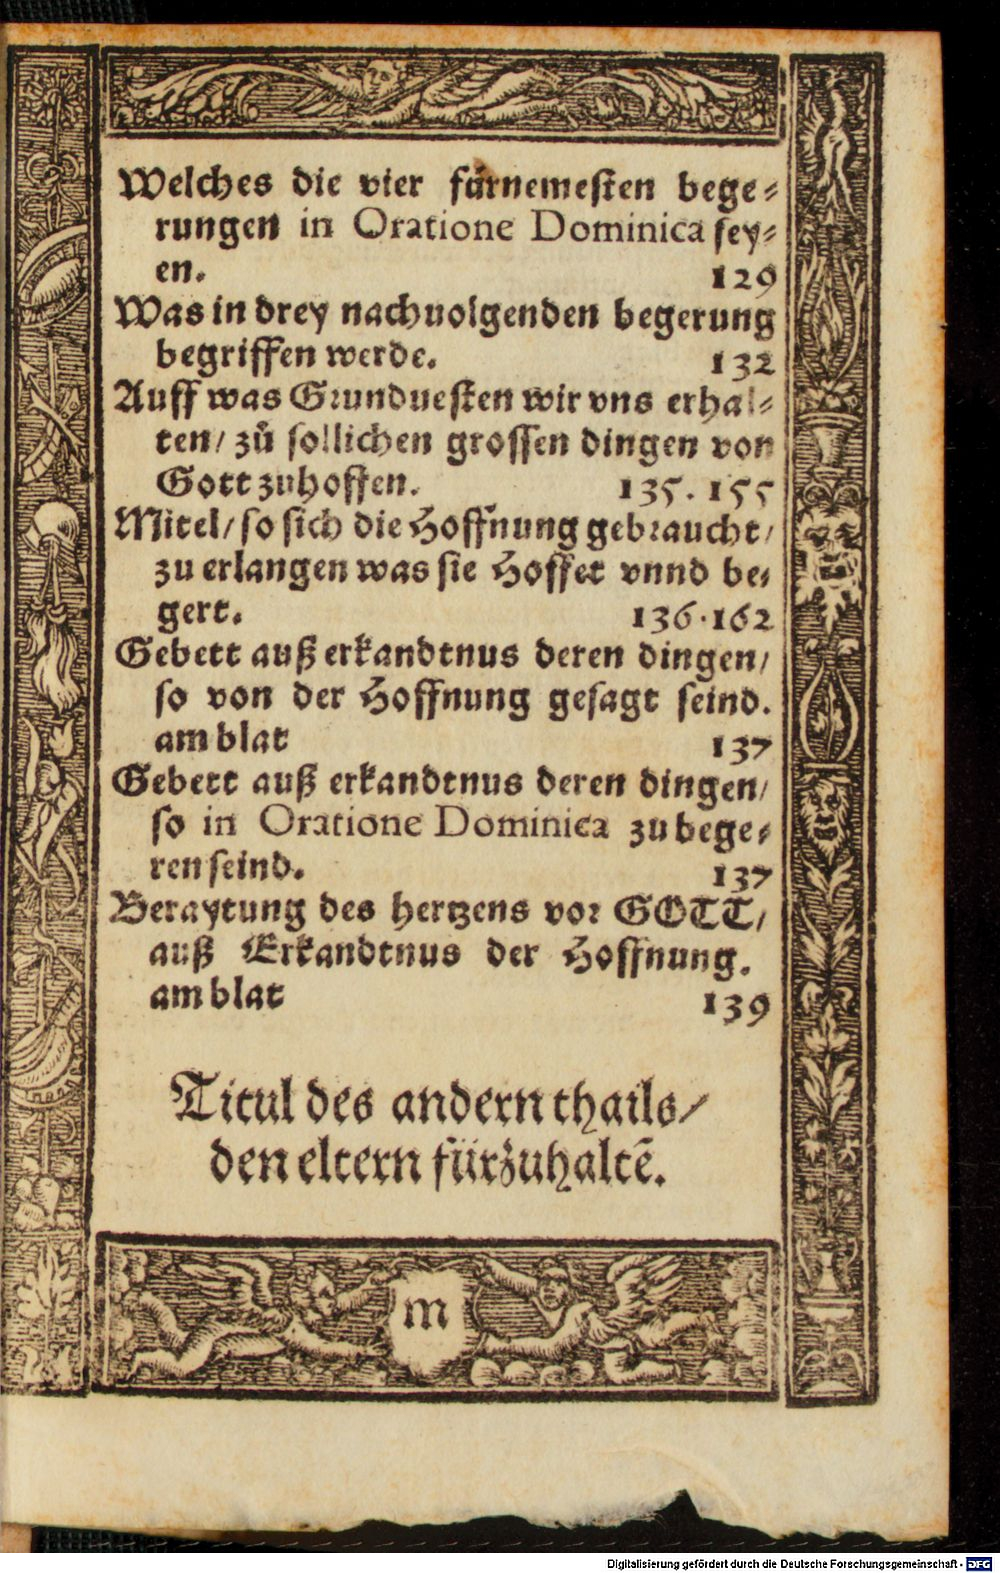 Welches die vier fürnemesten bege⸗
rungen in Oratione Dominica sey⸗
en. 129
Was in drey nachuolgenden begerung
begriffen werde. 132
Auff was Grunduesten wir vns erhal⸗
ten/ zů sollichen grossen dingen von
Gott zuhoffen. 135. 155
Mitel/ so sich die Hoffnung gebraucht/
zu erlangen was sie Hoffet vnnd be⸗
gert. 136.162
Gebett auß erkandtnus deren dingen/
so von der Hoffnung gesagt seind.
am blat 137
Gebett auß erkandtnus deren dingen/
so in Oratione Dominica zu bege⸗
ren seind. 137
Beraytung des hertzens vor GOTT/
auß Erkandtnus der Hoffnung.
am blat 139
Titul des andern thails/
den eltern fürzuhaltē.
m
Digitalisierung gefördert durch die Deutsche Forschungsgemeinschaft - DFG